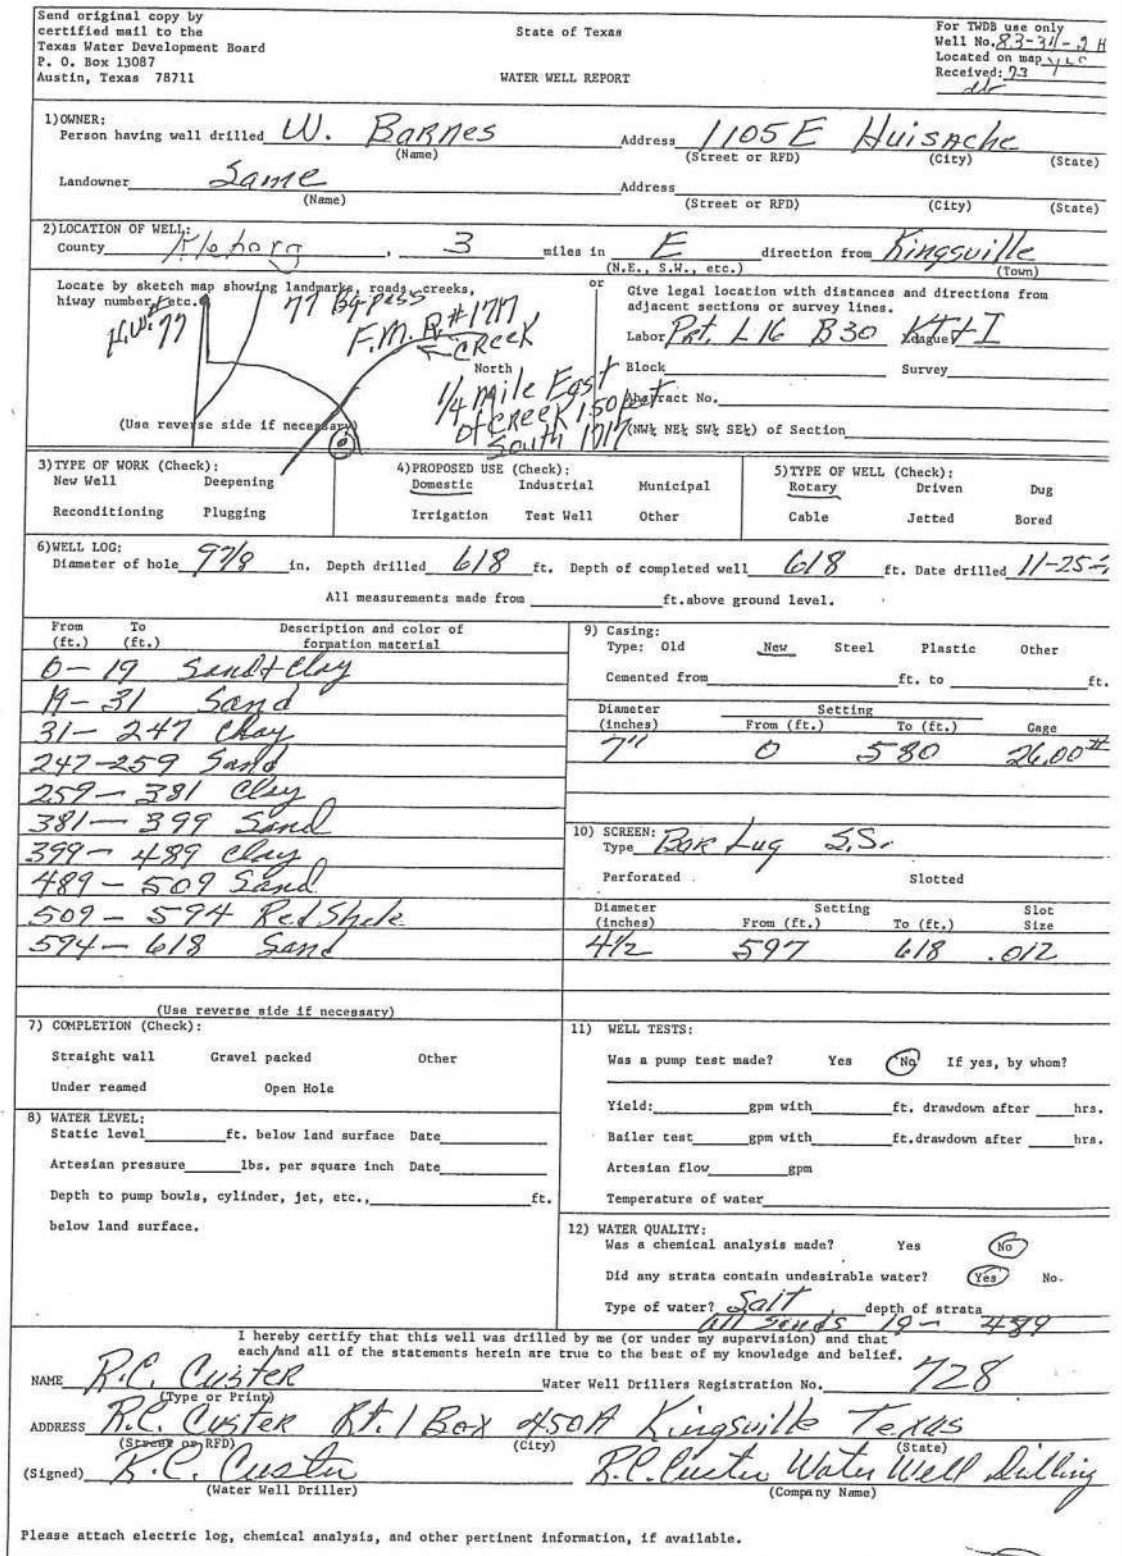 Send original copy by
certified mail to the
Texas Water Development Board
P. O. Box 13087
Austin, Texas 78711
State of Texas
WATER WELL REPORT
For TWDB use only
Well No. 83-34-2H
Located on map yes
Received: 73
1) OWNER:
Person having well drilled W. Barnes Address 1105 E Huisache
(Name) (Street or RFD) (City) (State)
Landowner Same Address
(Name) (Street or RFD) (City) (State)
2) LOCATION OF WELL:
County Kleberg, 3 miles in E direction from Kingsville
(N.E., S.W., etc.) (Town)
Locate by sketch map showing landmarks, roads, creeks,
hiway number, etc.
H.W. 77
77 By-pass
F.M. R. #1717
← CREEK
North
1/4 mile East
of creek 150 feet
South 1717
(Use reverse side if necessary)
or
Give legal location with distances and directions from
adjacent sections or survey lines.
Labor Prt. L 16 B30 League KT & I
Block Survey
Abstract No.
(NW¼ NE¼ SW¼ SE¼) of Section
3) TYPE OF WORK (Check):
New Well Deepening
Reconditioning Plugging
4) PROPOSED USE (Check):
Domestic Industrial Municipal
Irrigation Test Well Other
5) TYPE OF WELL (Check):
Rotary Driven Dug
Cable Jetted Bored
6) WELL LOG:
Diameter of hole 9 7/8 in. Depth drilled 618 ft. Depth of completed well 618 ft. Date drilled 11-25-
All measurements made from ft.above ground level.
From (ft.) To (ft.) Description and color of formation material
0 - 19 Sand + Clay
19 - 31 Sand
31 - 247 Clay
247-259 Sand
259 - 381 Clay
381 - 399 Sand
399 - 489 Clay
489 - 509 Sand
509 - 594 Red Shele
594 - 618 Sand
(Use reverse side if necessary)
9) Casing:
Type: Old New Steel Plastic Other
Cemented from ft. to ft.
Diameter (inches) Setting From (ft.) To (ft.) Gage
7" 0 580 26.00#
10) SCREEN:
Type Bar Lug S.S.
Perforated Slotted
Diameter (inches) Setting From (ft.) To (ft.) Slot Size
4½ 597 618 .012
7) COMPLETION (Check):
Straight wall Gravel packed Other
Under reamed Open Hole
8) WATER LEVEL:
Static level ft. below land surface Date
Artesian pressure lbs. per square inch Date
Depth to pump bowls, cylinder, jet, etc., ft.
below land surface.
11) WELL TESTS:
Was a pump test made? Yes No If yes, by whom?
Yield: gpm with ft. drawdown after hrs.
Bailer test gpm with ft.drawdown after hrs.
Artesian flow gpm
Temperature of water
12) WATER QUALITY:
Was a chemical analysis made? Yes No
Did any strata contain undesirable water? Yes No.
Type of water? Salt, depth of strata
All Sands 19 - 489
I hereby certify that this well was drilled by me (or under my supervision) and that
each and all of the statements herein are true to the best of my knowledge and belief.
NAME R.C. Custer Water Well Drillers Registration No. 728
(Type or Print)
ADDRESS R.C. Custer Rt. 1 Box 450A Kingsville Texas
(Street or RFD) (City) (State)
(Signed) R.C. Custer R.C. Custer Water Well Drilling
(Water Well Driller) (Company Name)
Please attach electric log, chemical analysis, and other pertinent information, if available.